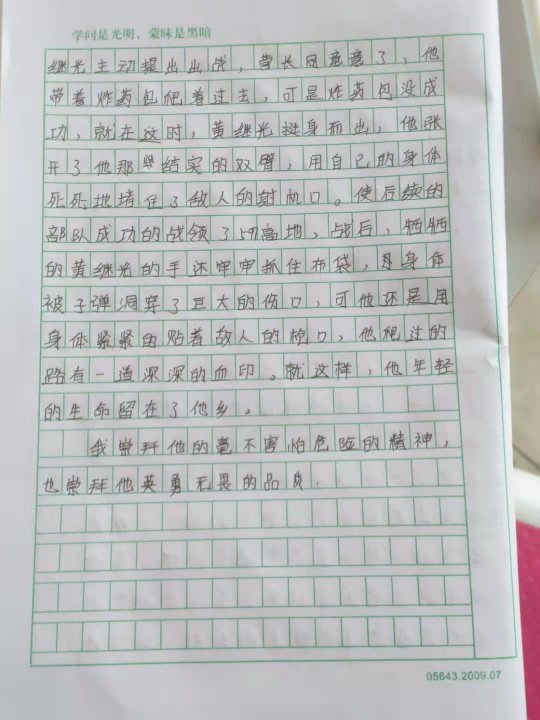 学问是光明，蒙昧是黑暗
继光主动提出出战，营长同意了，他
带着炸药包爬着过去，可是炸药包没成
功，就在这时，黄继光挺身而出，他张
开了他那结实的双臂，用自己的身体
死死地堵住了敌人的射机口。使后续的
部队成功的战领了597高地，战后，牺牲
的黄继光的手还牢牢抓住布袋，身体
被子弹洞穿了巨大的伤口，可他还是用
身体紧紧的贴着敌人的枪口，他爬过的
路有一道深深的血印。就这样，他年轻
的生命留在了他乡。
我崇拜他的毫不害怕危险的精神，
也崇拜他英勇无畏的品质.
05643.2009.07